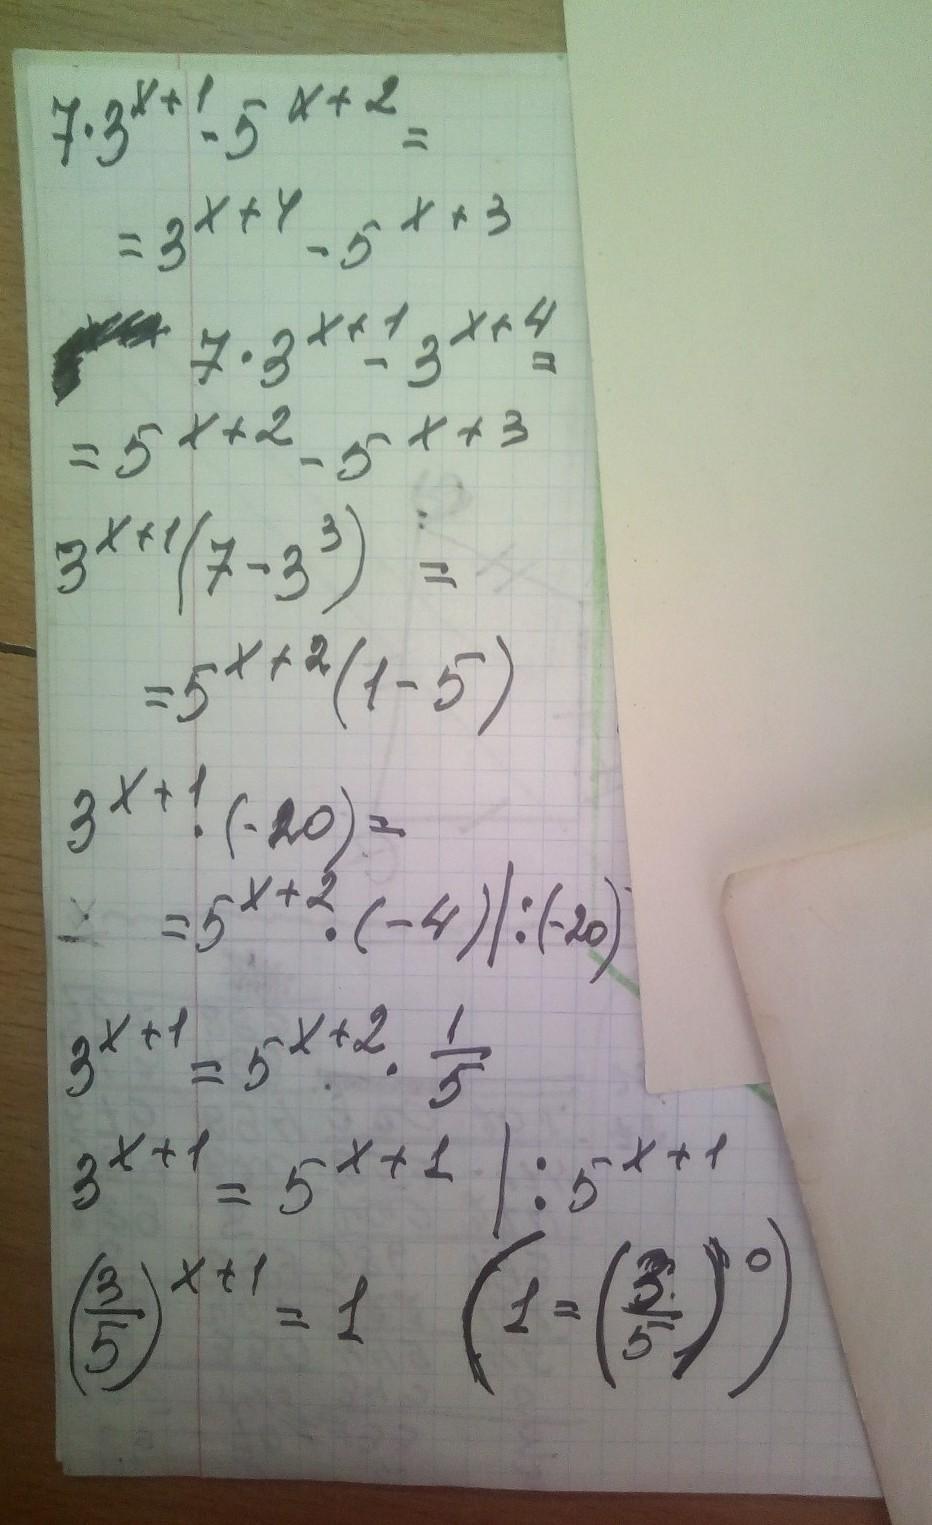 7·3^(x+1) - 5^(x+2) =
= 3^(x+4) - 5^(x+3)
7·3^(x+1) - 3^(x+4) =
= 5^(x+2) - 5^(x+3)
3^(x+1)(7 - 3^3) =
= 5^(x+2)(1 - 5)
3^(x+1)·(-20) =
= 5^(x+2)·(-4) | :(-20)
3^(x+1) = 5^(x+2)·1/5
3^(x+1) = 5^(x+1) | : 5^(x+1)
(3/5)^(x+1) = 1 (1 = (3/5)^0)